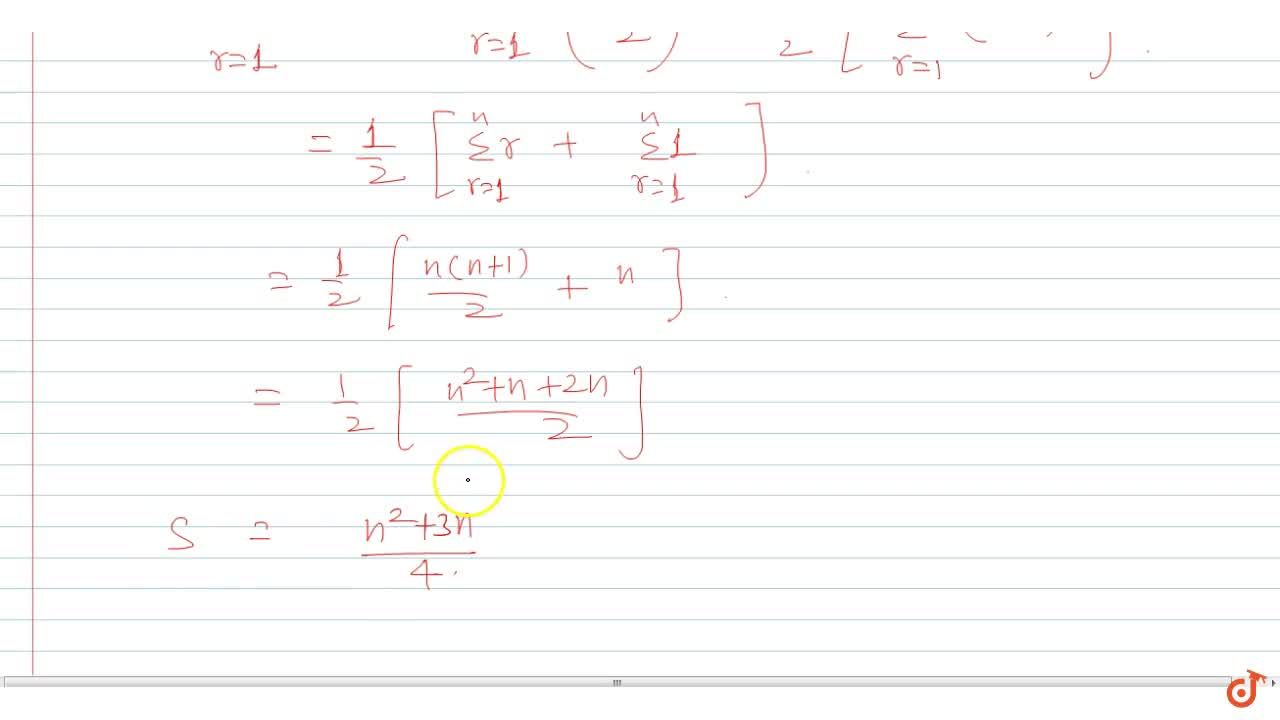 r=1 r=1 ( 2 ) 2 [ r=1 ]
= 1/2 [ n Σ r=1 r + n Σ r=1 1 ]
= 1/2 [ n(n+1)/2 + n ]
= 1/2 [ n²+n+2n/2 ]
S = n²+3n/4